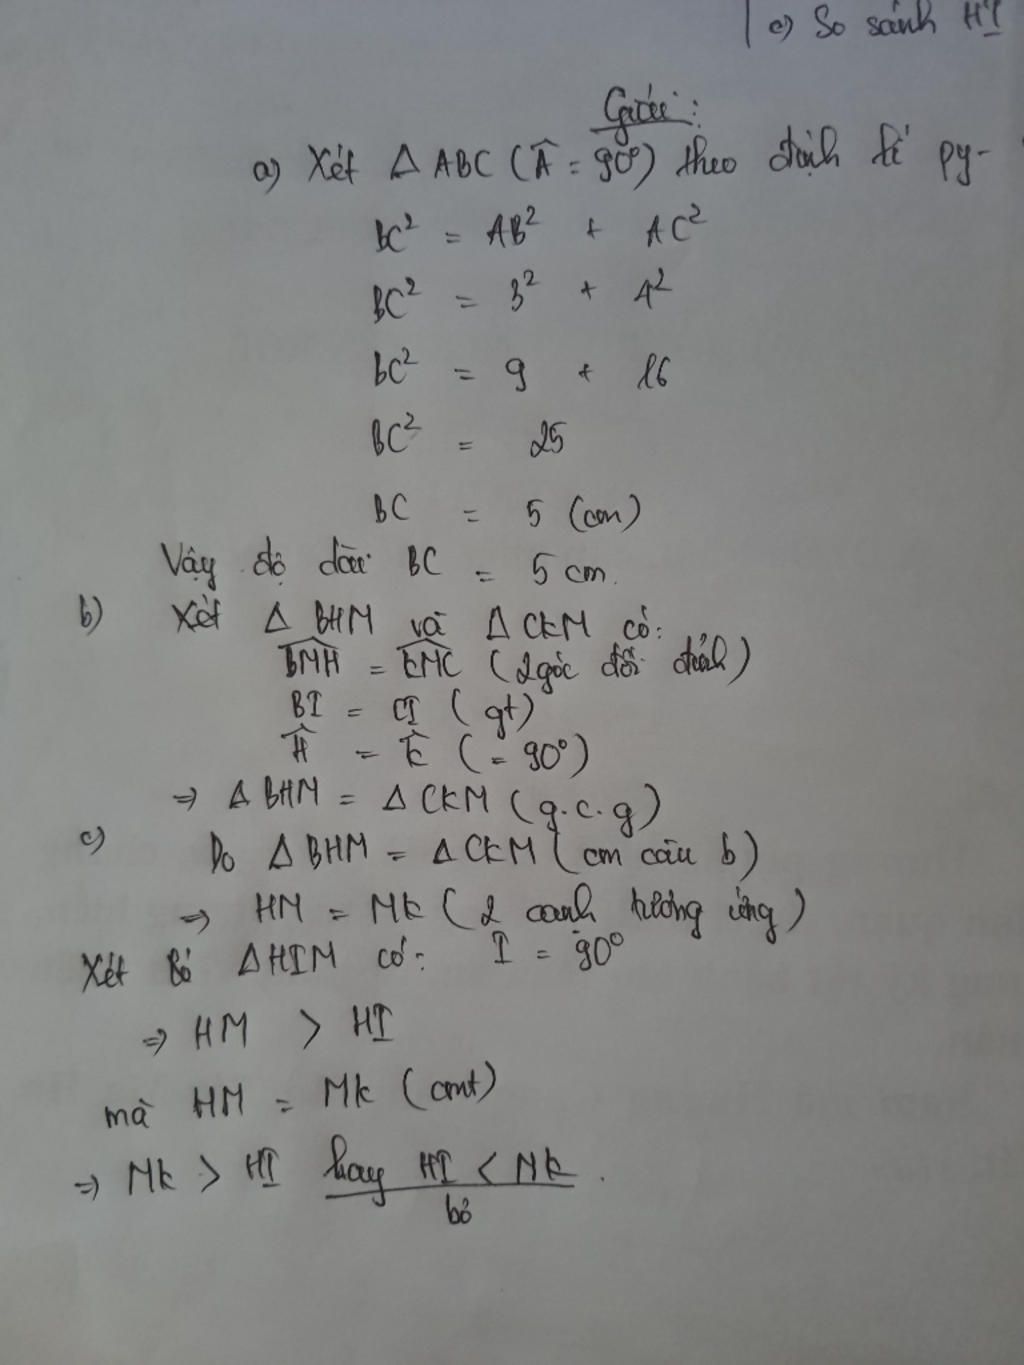 c) So sánh HI
Giải:
a) Xét Δ ABC (Â = 90°) theo định lí py-
BC² = AB² + AC²
BC² = 3² + 4²
BC² = 9 + 16
BC² = 25
BC = 5 (cm)
Vậy độ dài BC = 5 cm.
b) Xét Δ BHM và Δ CKM có:
BMH = KMC (2 góc đối đỉnh)
BI = CI (gt)
Ĥ = K̂ (= 90°)
⇒ Δ BHM = Δ CKM (g.c.g)
c) Do Δ BHM = Δ CKM (cm câu b)
⇒ HM = MK (2 cạnh tương ứng)
Xét bỏ ΔHIM có: I = 90°
⇒ HM > HI
mà HM = MK (cmt)
⇒ MK > HI hay HI < MK.
bỏ